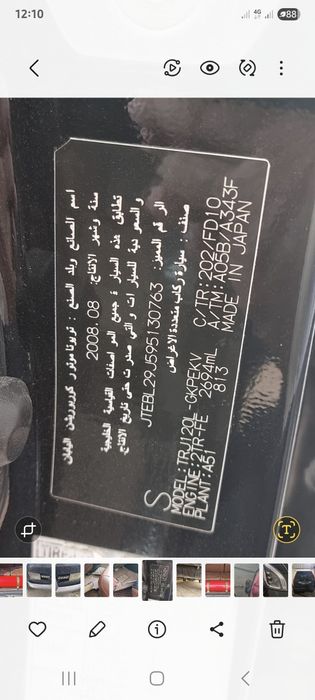 12:10
4G
88
اسم الصانع وبلد الصنع : تويوتا موتور كوربوريشن اليابان
سنة وشهر الإنتاج: 2008.08
تطابق هذه السيارة جميع المواصفات القياسية الخليجية
والسعودية للسيارات والتي صدرت حتى تاريخ الانتاج.
الرقم المميز: JTEBL29J595130763
صنف : سيارة ركاب متعددة الاغراض
S
MODEL:TRJ120L-GKPEKV C/TR:202/FD10
ENGINE:2TR-FE 2694mL A/TM:A05B/A343F
PLANT:A51 813 MADE IN JAPAN
T